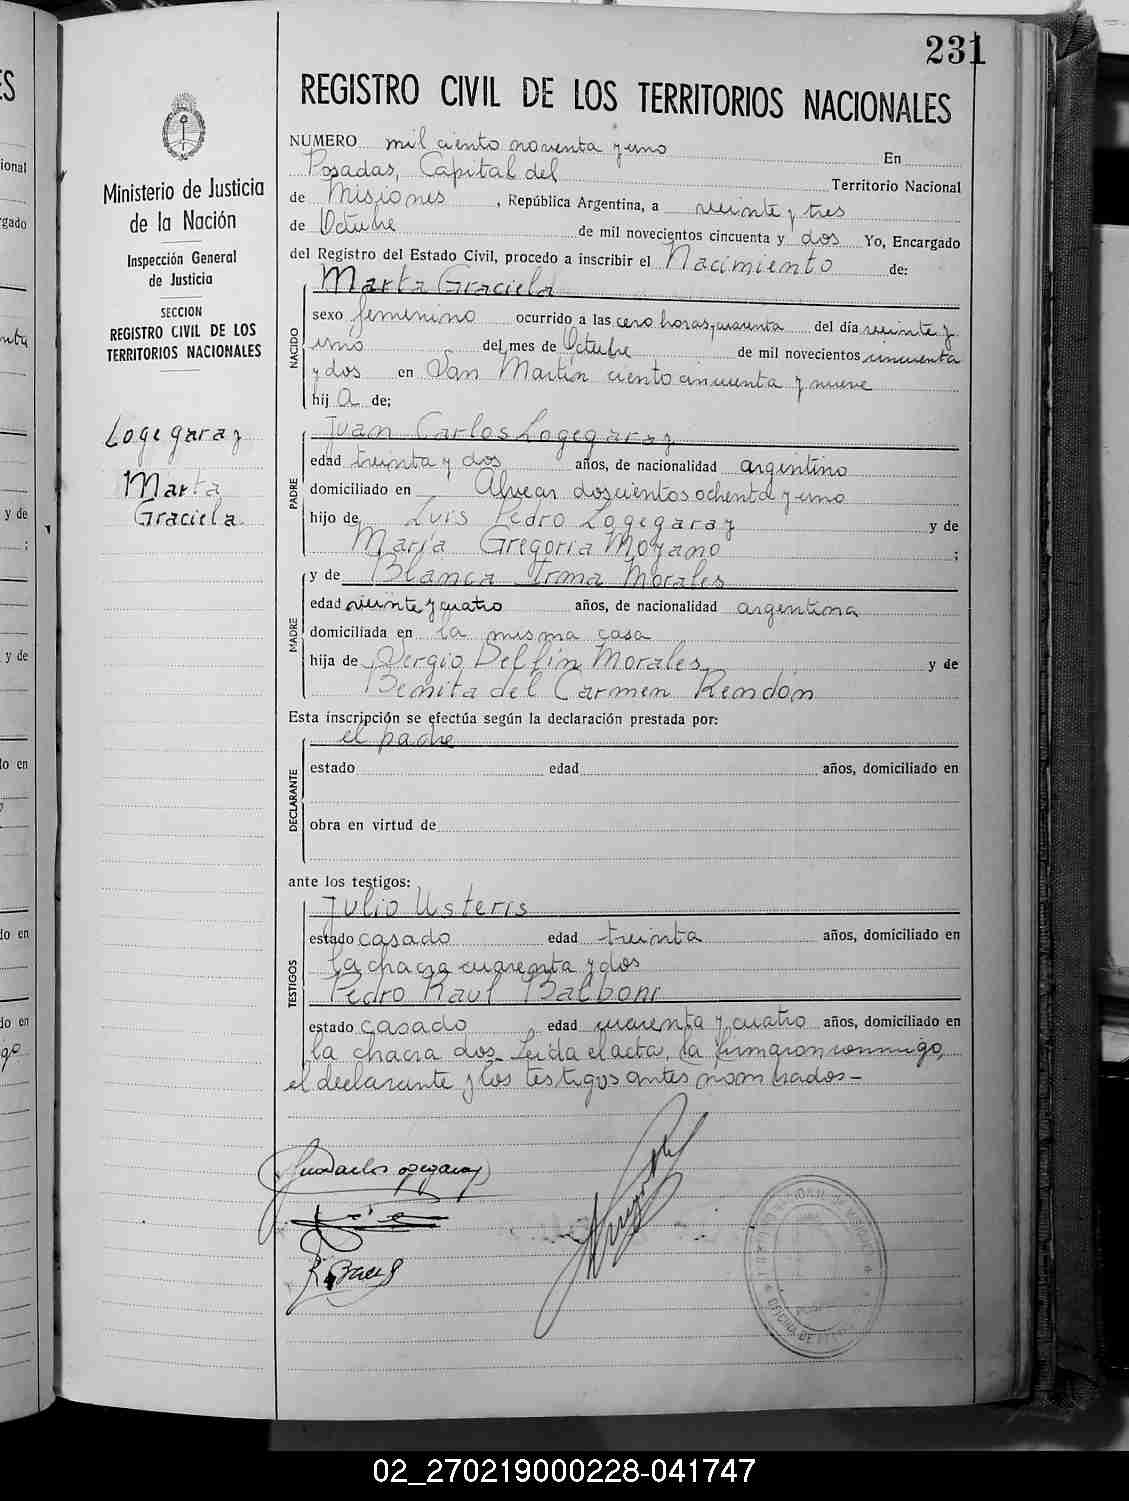 231
REGISTRO CIVIL DE LOS TERRITORIOS NACIONALES
Ministerio de Justicia
de la Nación
Inspección General
de Justicia
SECCION
REGISTRO CIVIL DE LOS
TERRITORIOS NACIONALES
Logegaraz
Marta
Graciela
NUMERO mil ciento noventa y uno En
Posadas, Capital del Territorio Nacional
de Misiones, República Argentina, a veinte y tres
de Octubre de mil novecientos cincuenta y dos Yo, Encargado
del Registro del Estado Civil, procedo a inscribir el Nacimiento de:
NACIDO
Marta Graciela
sexo femenino ocurrido a las cero horas, cuarenta del día veinte y
uno del mes de Octubre de mil novecientos cincuenta
y dos en San Martin ciento cincuenta y nueve
hij a de;
PADRE
Juan Carlos Logegaraz
edad treinta y dos años, de nacionalidad argentino
domiciliado en Alvear doscientos ochenta y uno
hijo de Luis Pedro Logegaraz y de
María Gregoria Moyano ;
MADRE
y de Blanca Irma Morales
edad veinte y cuatro años, de nacionalidad argentina
domiciliada en la misma casa
hija de Sergio Delfín Morales y de
Benita del Carmen Rendón
Esta inscripción se efectúa según la declaración prestada por:
DECLARANTE
el padre
estado edad años, domiciliado en
obra en virtud de
ante los testigos:
TESTIGOS
Julio Usteris
estado casado edad treinta años, domiciliado en
la chacra cuarenta y dos
Pedro Raul Balboni
estado casado edad cuarenta y cuatro años, domiciliado en
la chacra dos. Leída el acta, la firmaron conmigo,
el declarante y los testigos antes nombrados—
02_270219000228-041747